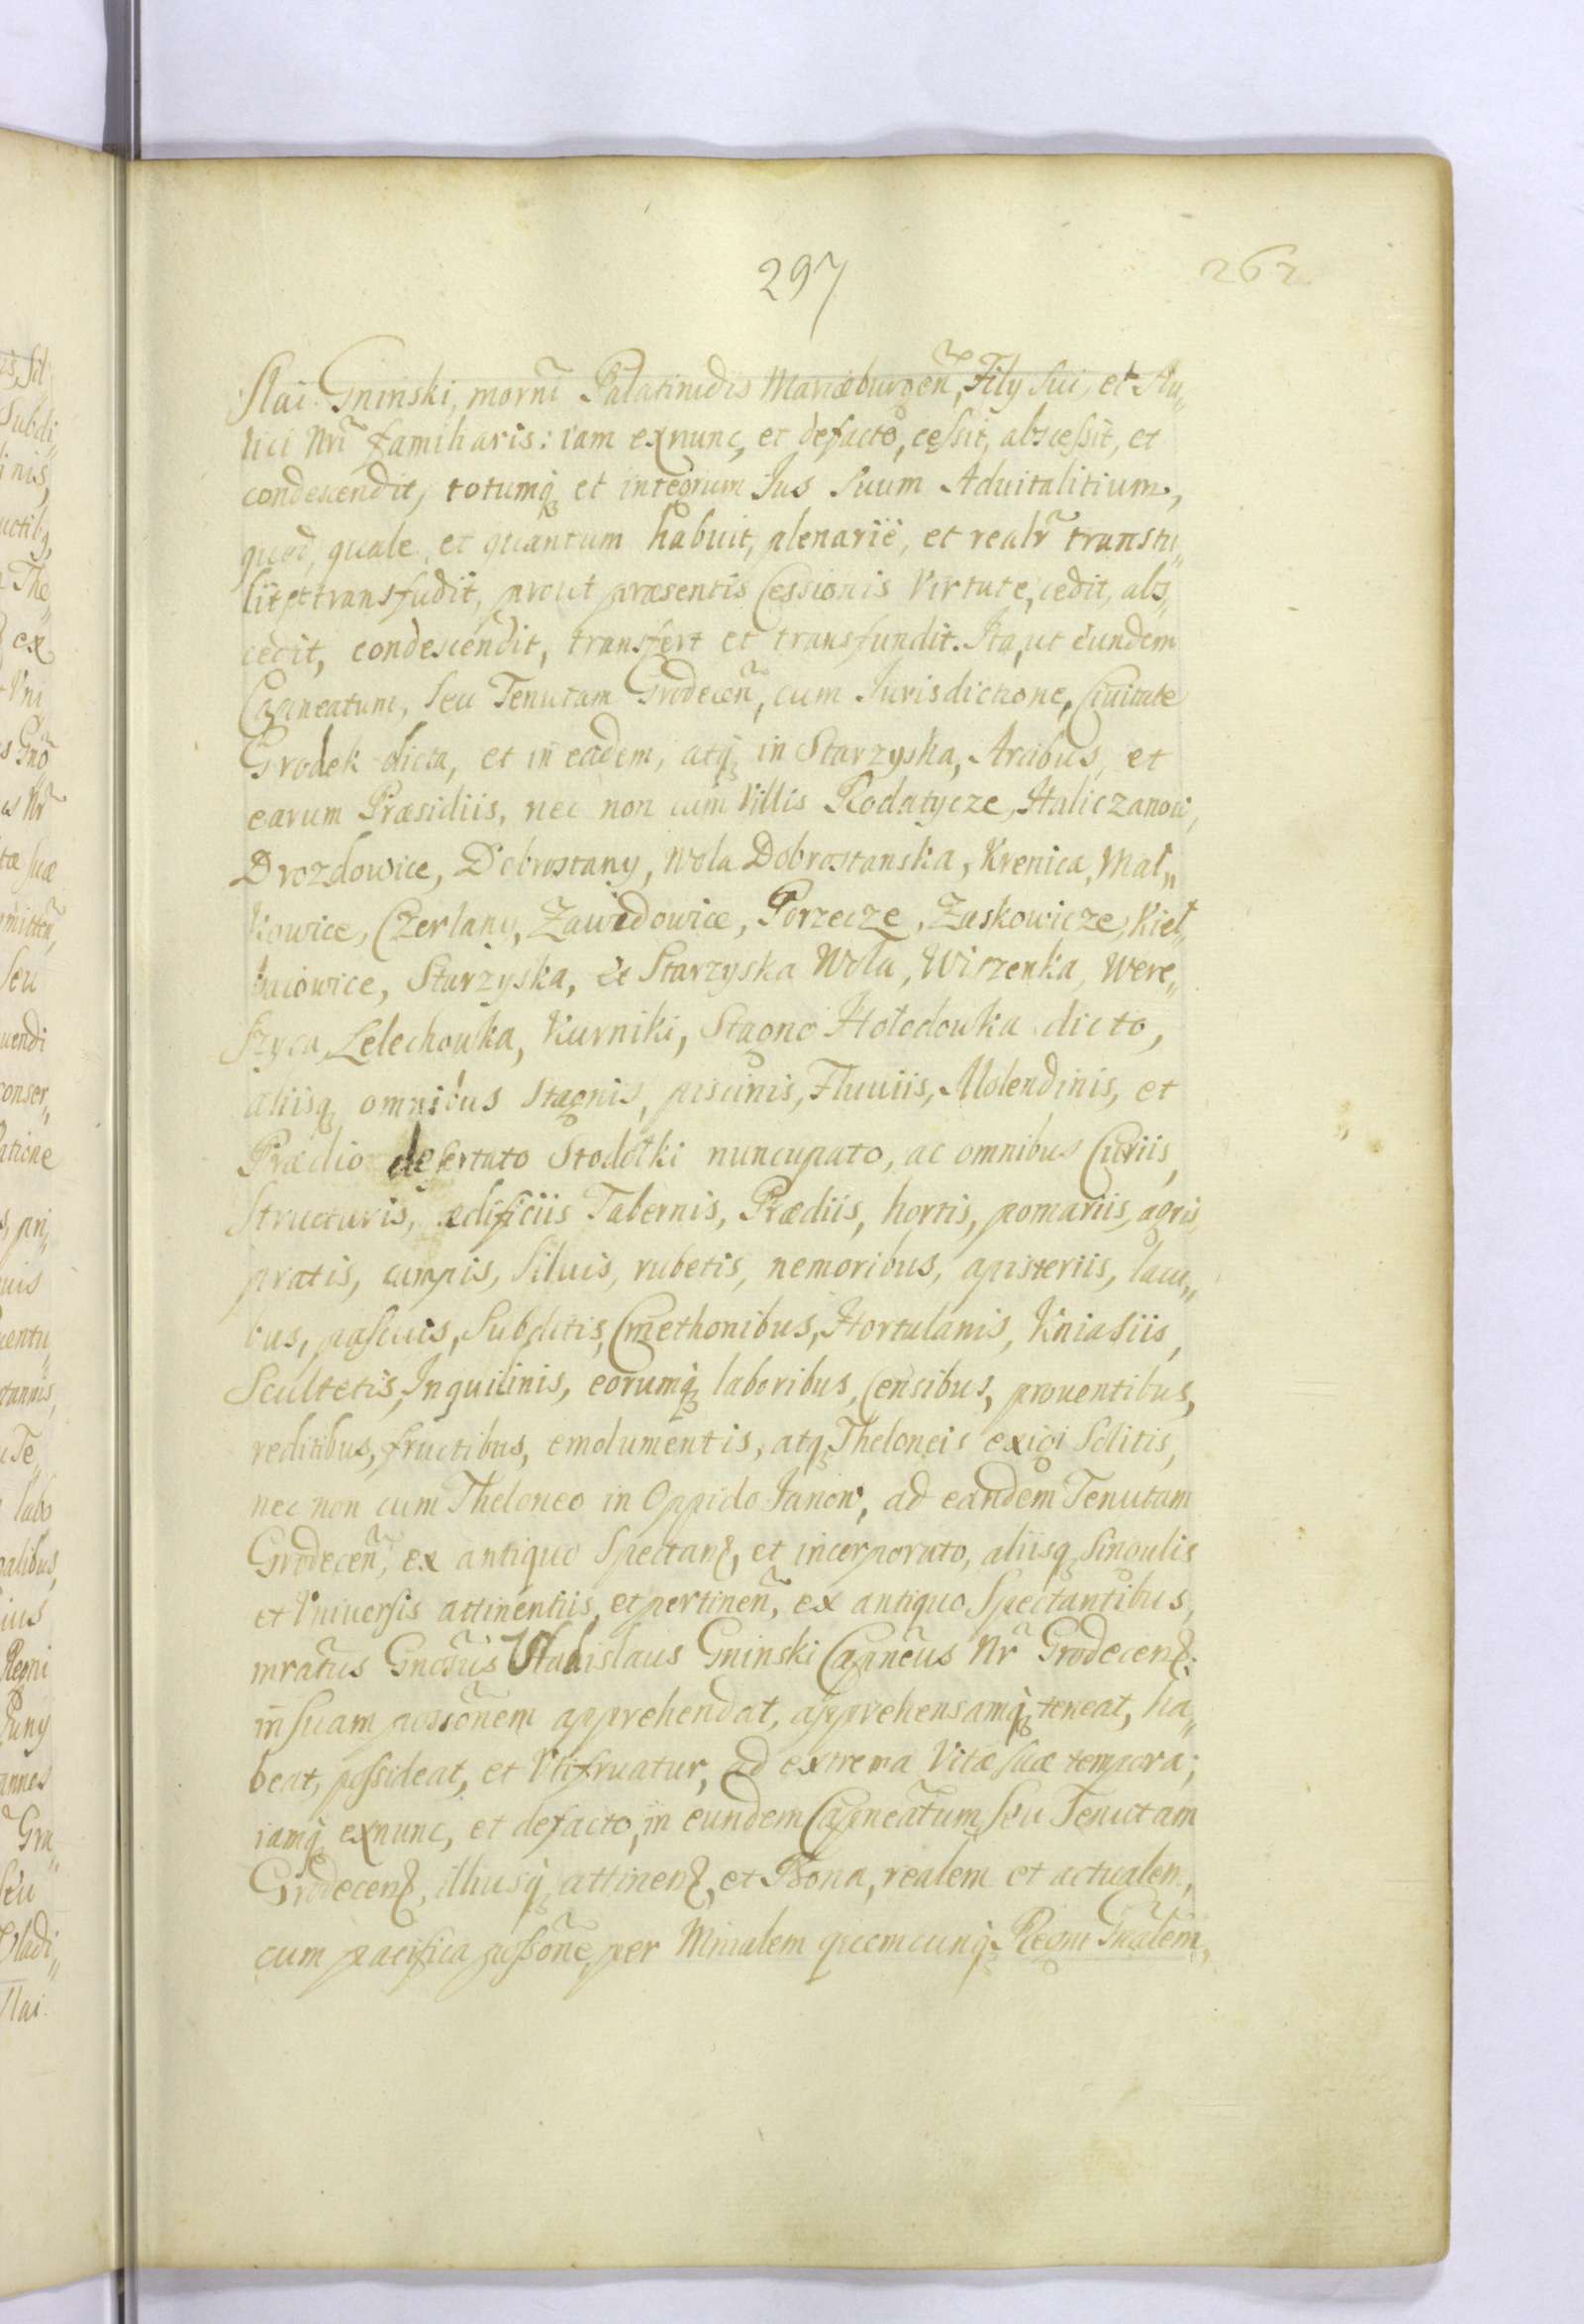 297
262
slai Gninski, morñi Palatinidis Mariæburgeñ, Filÿ sui, et Au„
lici Nrĩ familiaris: iam exnunc, et defacto, cessit, abscessit, et
condescendit, totumq́ et integrum Jus suum Aduitalitium,
quod, quale, et quantum habuit, plenariè, et realr̃ transtu„
lit et transfudit, prout præsentis Cessionis virtute, cedit, abs„
cedit, condescendit, transfert et transfundit. Ita, ut eundem
Capneatum, seu Tenutam Grodeceñ, cum Iurisdictione, Ciuitate
Grodek dicta, et in eadem, atq́ in Starzyska, Arcibus, et
earum Præsidiis, nec non cum Villis Rodatycze, Haliczanow,
Drozdowice, Dobrostany, Wola Dobrostanska, Krenica, Mal„
kowice, Czerlany, Zawidowice, Porzecze, Zaskowicze, Kiel„
baiowice, Starzyska, et Starzyska Wola, Wiszenka, Were„
szyca, Lelechowka, Kurniki, Stagno Hołodowka dicto,
aliisq́ omnibus Stagnis, piscinis, Fluuiis, Molendinis, et
Prædio desertato Stodołki nuncupato, ac omnibus Curiis,
Structuris, ædificiis Tabernis, Prædiis, hortis, pomariis, agris,
pratis, campis, Siluis, rubetis, nemoribus, apisteriis, lacu„
bus, pascuis, Subditis, Cmethonibus, Hortulanis, Kniasiis,
Scultetis, Inquilinis, eorumq́ laboribus, Censibus, prouentibus,
reditibus, fructibus, emolumentis, atq́ Theloneis exigi Solitis,
nec non cum Theloneo in Oppido Janow, ad eandem Tenutam
Grodeceñ, ex antiquo Spectanſ, et incorporato, aliisq́ Singulis
et Vniuersis attinentiis, et pertineñ, ex antiquo Spectantibus,
mratus Gnosus Vladislaus Gninski Capneus Nr̃ Grodecenſ:
in suam possonem apprehendat, apprehensamq́ teneat, ha„
beat, possideat, et Vtifruatur, ad extrema Vitæ suæ tempora;
iamq́ exnunc, et defacto, in eundem Capneatum, seu Tenutam
Grodecenſ, illiusq́ attinenſ, et Bona, realem et actualem,
cum pacifica possone, per Mnialem quemcunq́ Regni Gnãlem„